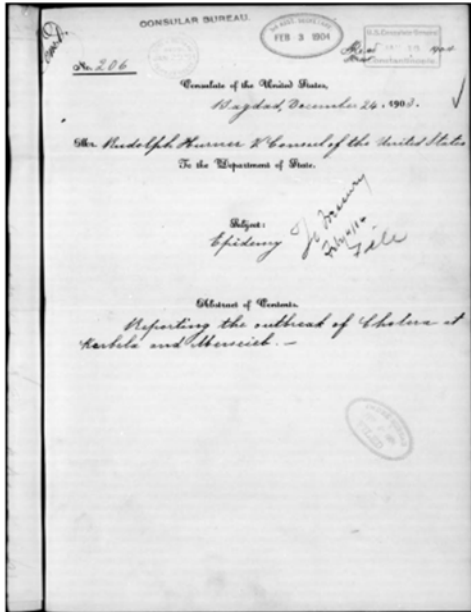 CONSULAR BUREAU.
FEB 3 1904
U.S. Consulate General
No. 206
Consulate of the United States,
Bagdad, December 24. 1903.
Mr. Rudolph Hurner V. Consul of the United States
To the Department of State.
Subject:
Epidemy
To Treasury
File
Abstract of Contents.
Reporting the outbreak of Cholera at
Kerbela and Musseieb. —